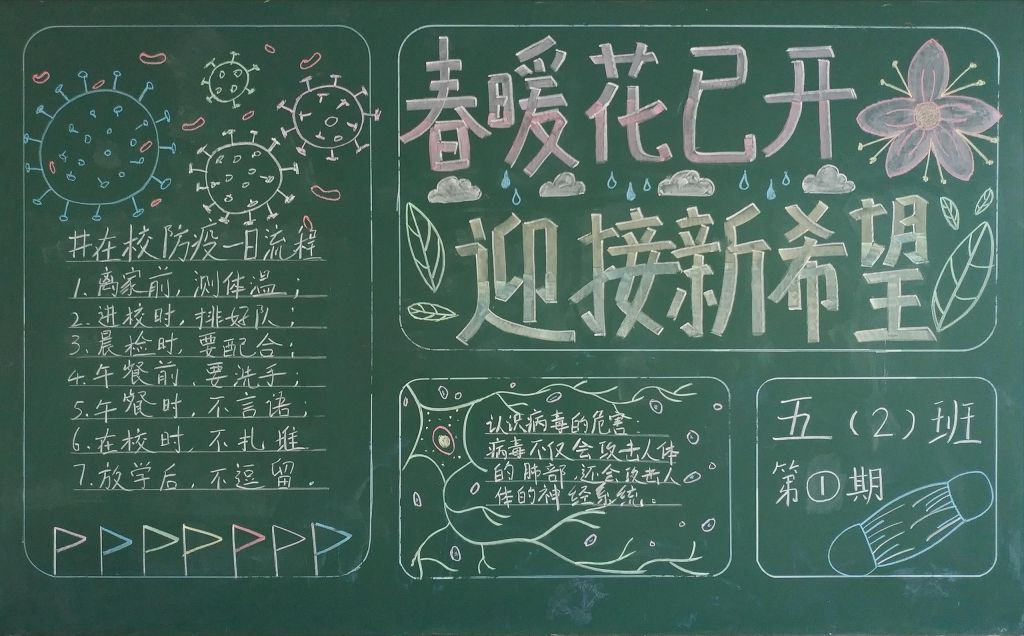 春暖花已开
迎接新希望
#在校防疫一日流程
1.离家前,测体温;
2.进校时,排好队;
3.晨检时,要配合;
4.午餐前,要洗手;
5.午餐时,不言语;
6.在校时,不扎堆
7.放学后,不逗留。
认识病毒的危害
病毒不仅会攻击人体
的肺部,还会攻击人
体的神经系统。
五(2)班
第①期